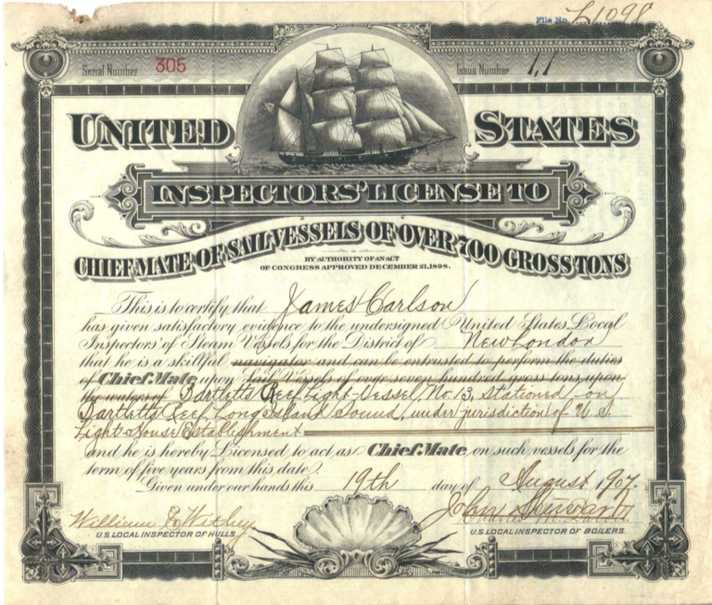 File No. L1098
Serial Number 305 Issue Number 1,1
UNITED STATES
INSPECTORS' LICENSE TO
CHIEF MATE OF SAIL VESSELS OF OVER 700 GROSS TONS
BY AUTHORITY OF AN ACT
OF CONGRESS APPROVED DECEMBER 21, 1898.
This is to certify that James Carlson
has given satisfactory evidence to the undersigned United States Local
Inspectors of Steam Vessels for the District of New London
that he is a skillful navigator and can be entrusted to perform the duties
of Chief Mate upon Sail Vessels of over seven hundred gross tons upon
the waters of Bartletts Reef Light-Vessel, No. 13, Stationed on
Bartletts Reef, Long Island Sound, under jurisdiction of U.S.
Light-House Establishment
and he is hereby Licensed to act as Chief Mate, on such vessels for the
term of five years from this date.
Given under our hands this 19th day of August, 1907.
William E Withey John Stewart
U.S. LOCAL INSPECTOR OF HULLS. U.S. LOCAL INSPECTOR OF BOILERS.